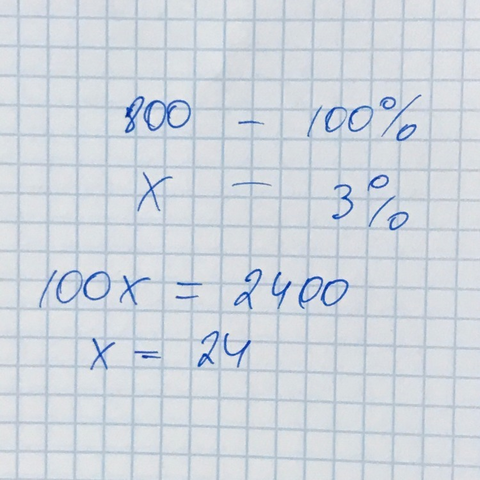 800 - 100%
x - 3%
100x = 2400
x = 24